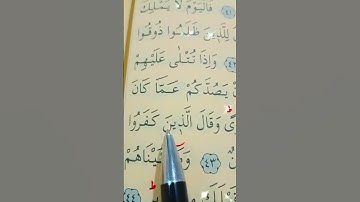 ٤١ فَالْيَوْمَ لَا يَمْلِكُ
لِلَّذِينَ ظَلَمُوا ذُوقُوا
٤٢ وَإِذَا تُتْلَى عَلَيْهِمْ
يَصُدَّكُمْ عَمَّا كَانَ
وَقَالَ الَّذِينَ كَفَرُوا
٤٣